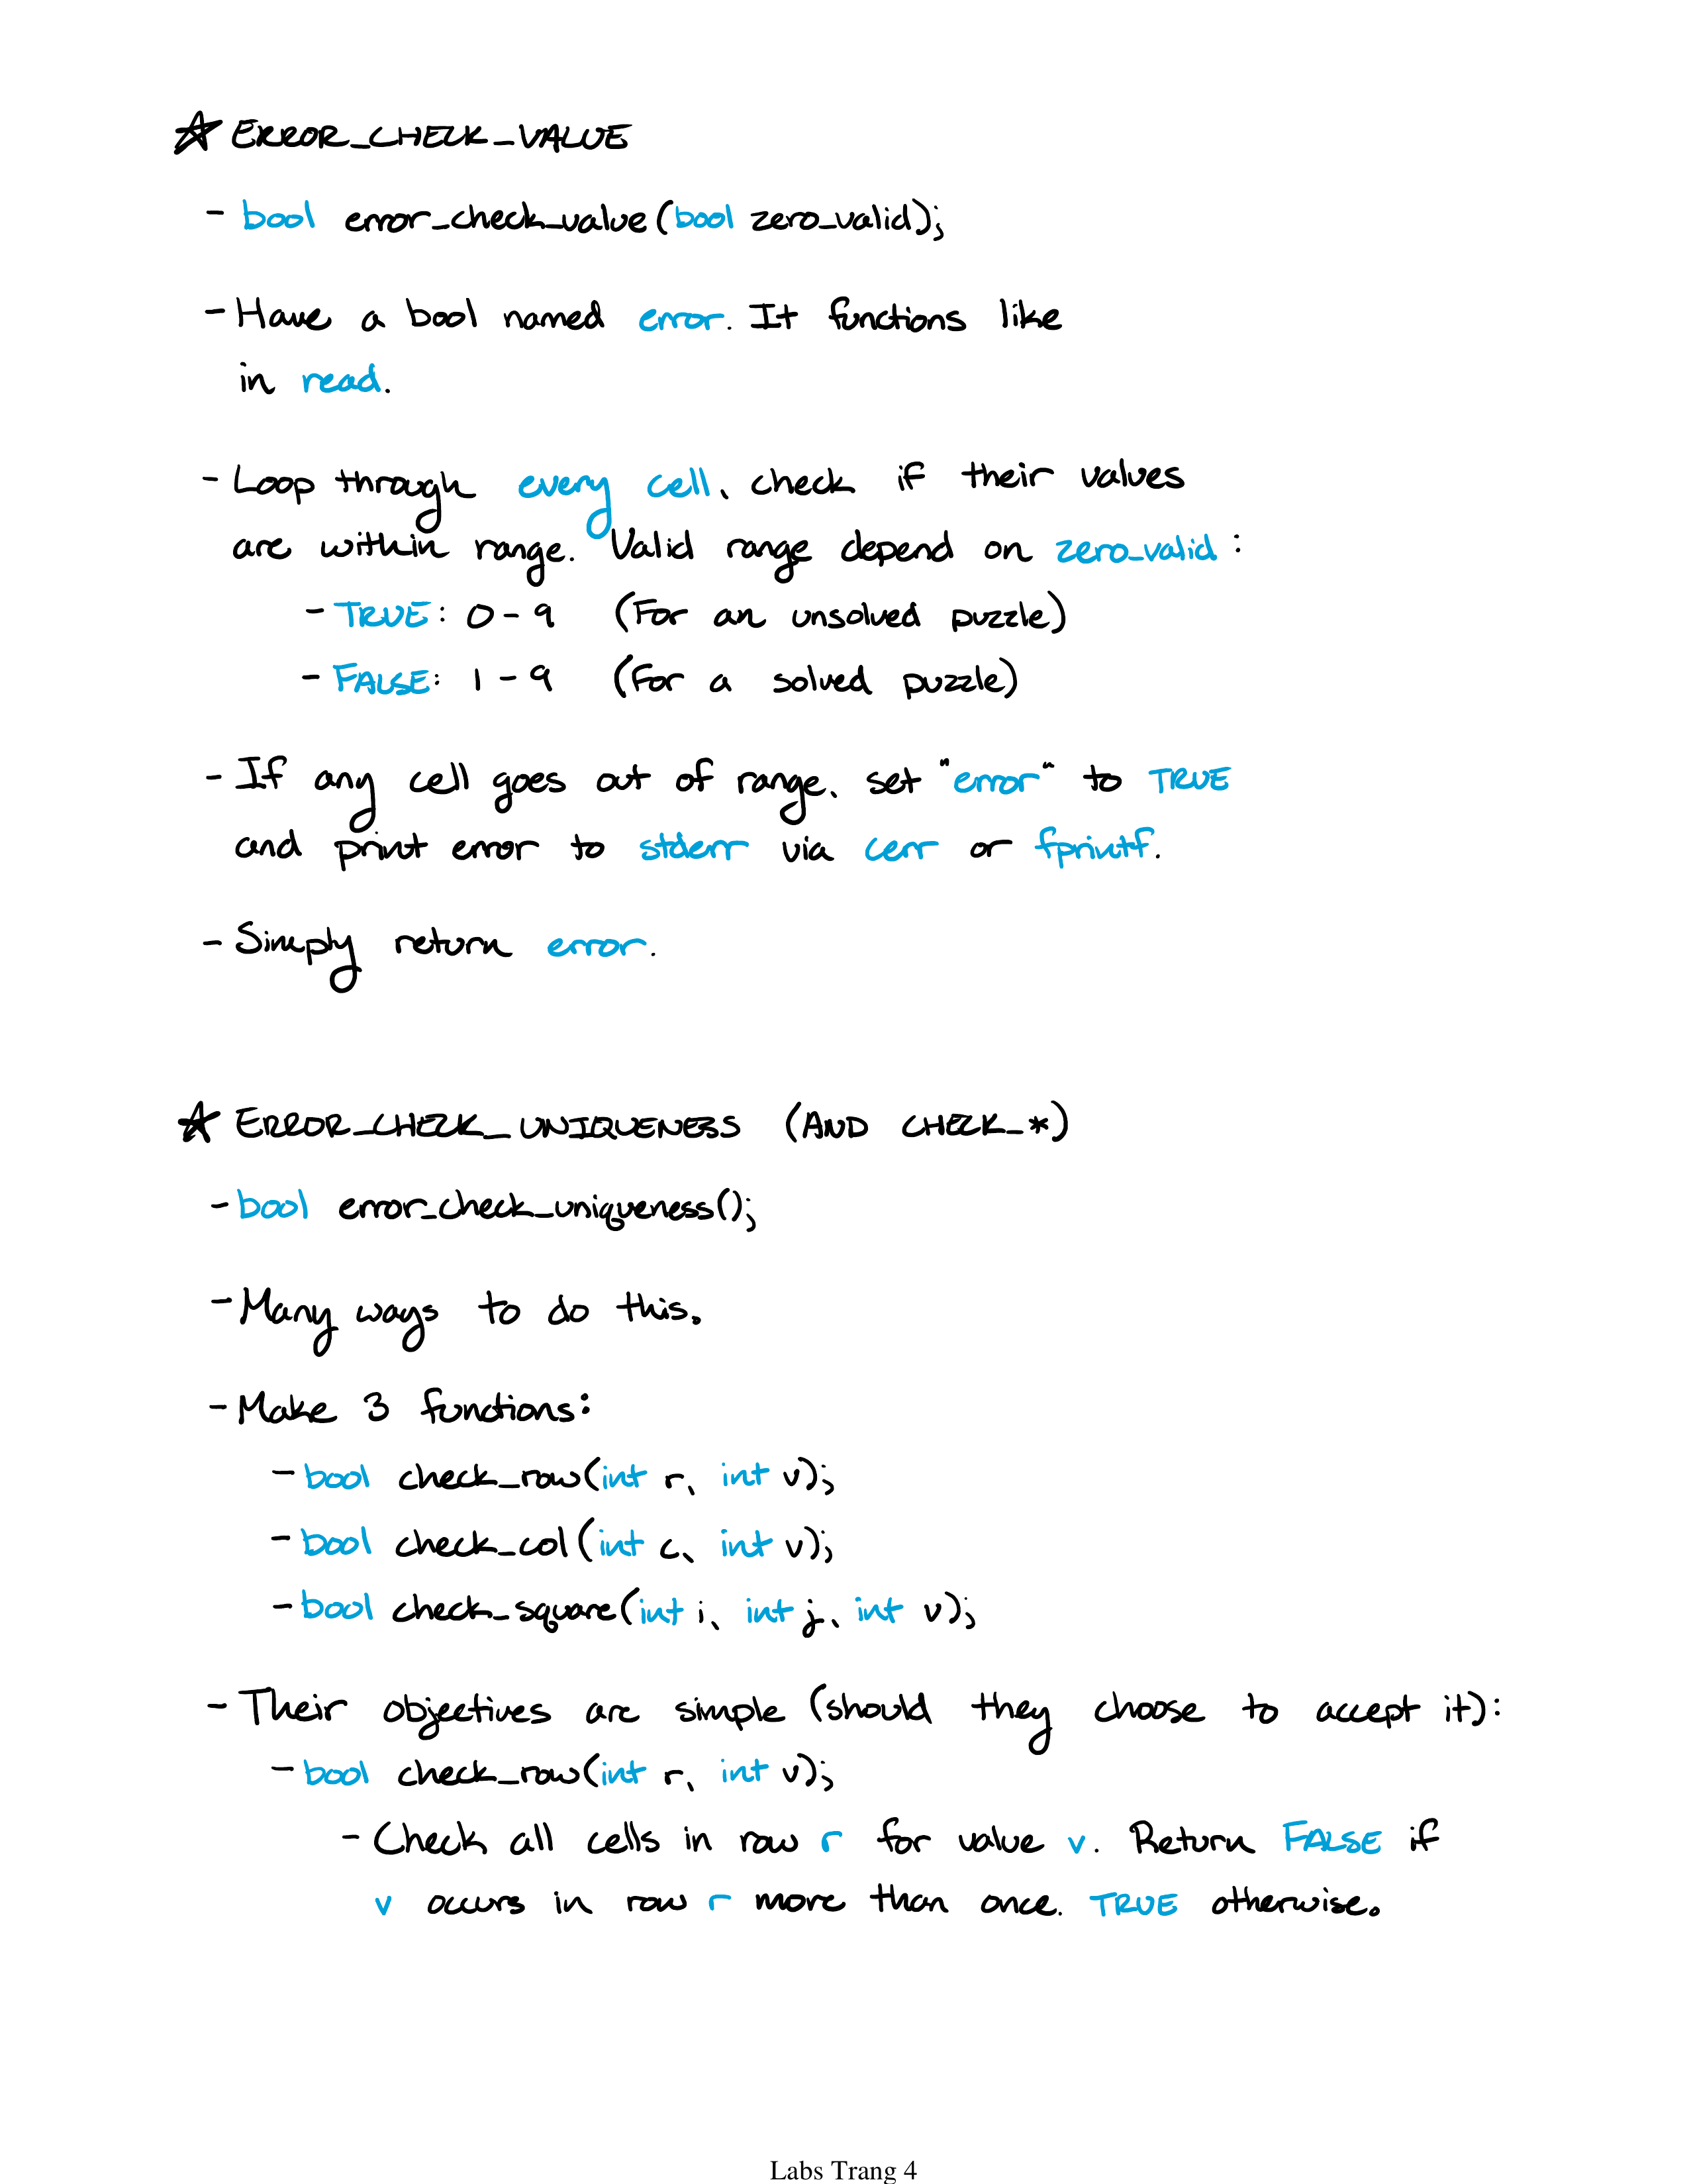 ☆ ERROR_CHECK_VALUE
- bool error_check_value(bool zero_valid);
- Have a bool named error. It functions like
in read.
- Loop through every cell, check if their values
are within range. Valid range depend on zero_valid:
- TRUE: 0-9 (For an unsolved puzzle)
- FALSE: 1-9 (For a solved puzzle)
- If any cell goes out of range, set "error" to TRUE
and print error to stderr via cerr or fprintf.
- Simply return error.
☆ ERROR_CHECK_UNIQUENESS (AND CHECK_*)
- bool error_check_uniqueness();
- Many ways to do this.
- Make 3 functions:
- bool check_row(int r, int v);
- bool check_col(int c, int v);
- bool check_square(int i, int j, int v);
- Their objectives are simple (should they choose to accept it):
- bool check_row(int r, int v);
- Check all cells in row r for value v. Return FALSE if
v occurs in row r more than once. TRUE otherwise.
Labs Trang 4